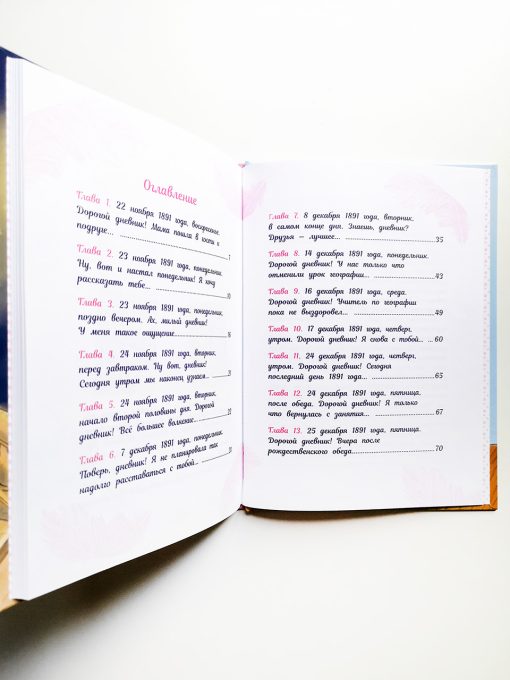 Оглавление
Глава 1. 22 ноября 1891 года, воскресенье.
Дорогой дневник! Мама пошла в гости к
подруге... 7
Глава 2. 23 ноября 1891 года, понедельник.
Ну, вот и настал понедельник! Я хочу
рассказать тебе... 10
Глава 3. 23 ноября 1891 года, понедельник,
поздно вечером. Ах, милый дневник!
У меня такое ощущение... 16
Глава 4. 24 ноября 1891 года, вторник,
перед завтраком. Ну вот, дневник!
Сегодня утром мы наконец узнаем... 21
Глава 5. 24 ноября 1891 года, вторник,
начало второй половины дня. Дорогой
дневник! Всё большее волнение...
Глава 6. 7 декабря 1891 года, понедельник.
Поверь, дневник! Я не планировала так
надолго расставаться с тобой...
Глава 7. 8 декабря 1891 года, вторник,
в самом конце дня. Знаешь, дневник?
Друзья – лучшее... 35
Глава 8. 14 декабря 1891 года, понедельник.
Дорогой дневник! У нас только что
отменили урок географии... 43
Глава 9. 16 декабря 1891 года, среда.
Дорогой дневник! Учитель по географии
пока не выздоровел... 49
Глава 10. 17 декабря 1891 года, четверг,
утром. Дорогой дневник! Я снова с тобой... 60
Глава 11. 24 декабря 1891 года, четверг,
утром. Дорогой дневник! Сегодня
последний день 1891 года... 65
Глава 12. 24 декабря 1891 года, пятница,
после обеда. Дорогой дневник! Я только
что вернулась с занятия... 67
Глава 13. 25 декабря 1891 года, пятница.
Дорогой дневник! Вчера после
рождественского обеда... 70